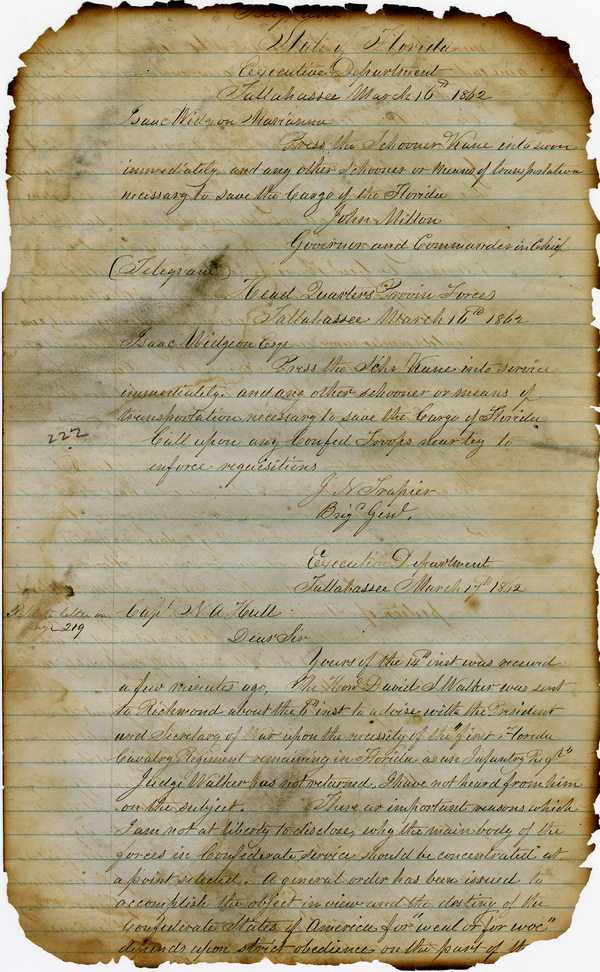 Telegram
State of Florida
Executive Department
Tallahassee March 16th 1862
Isaac Widgeon Marianna
Press the Schooner Kane into service
immediately and any other Schooner or means of transportation
necessary to save the Cargo of the Florida
John Milton
Governor and Commander in Chief
(Telegram)
Head Quarters Provin Forces
Tallahassee March 16th 1862
Isaac Widgeon Esqr
Press the Schr Kane into service
immediately. and any other schooner or means of
transportation necessary to save the Cargo of Florida
Call upon any Confed Troops near by to
enforce requisitions
222
J. H Trapier
Brig Genl.
Executive Department
Tallahassee March 17th 1862
letter on
page 219
Capt W. A Hull
Dear Sir
Yours of the 14th inst was received
a few minutes ago, The Honl David S Walker was sent
to Richmond about the 6th inst to advise with the President
and Secretary of War upon the necessity of the "first Florida
Cavalry Regiment remaining in Florida as an Infantry Regt"
Judge Walker has not returned. I have not heard from him
on the subject. There are important reasons which
I am not at liberty to disclose, why the main body of the
forces in Confederate service should be concentrated at
a point selected. A general order has been issued to
accomplish the object in view and the destiny of the
Confederate States of America for "weal or for woe"
depends upon strict obedience on the part of